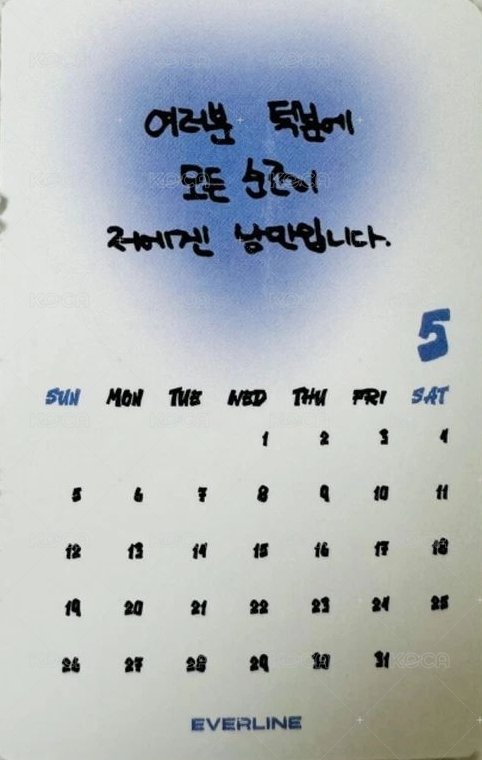 여러분 덕분에
모든 순간이
저에겐 낭만입니다.
5
SUN MON TUE WED THU FRI SAT
1 2 3 4
5 6 7 8 9 10 11
12 13 14 15 16 17 18
19 20 21 22 23 24 25
26 27 28 29 30 31
EVERLINE